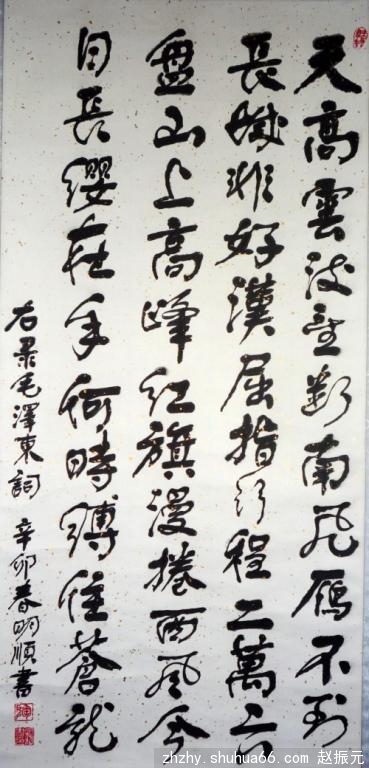 天高雲淡望斷南飛雁不到
長城非好漢屈指行程二萬六
盤山上高峰紅旗漫捲西風今
日長纓在手何時縛住蒼龍
右录毛澤東詞 辛卯春明順書
zhzhy.shuhua66.com 赵振元